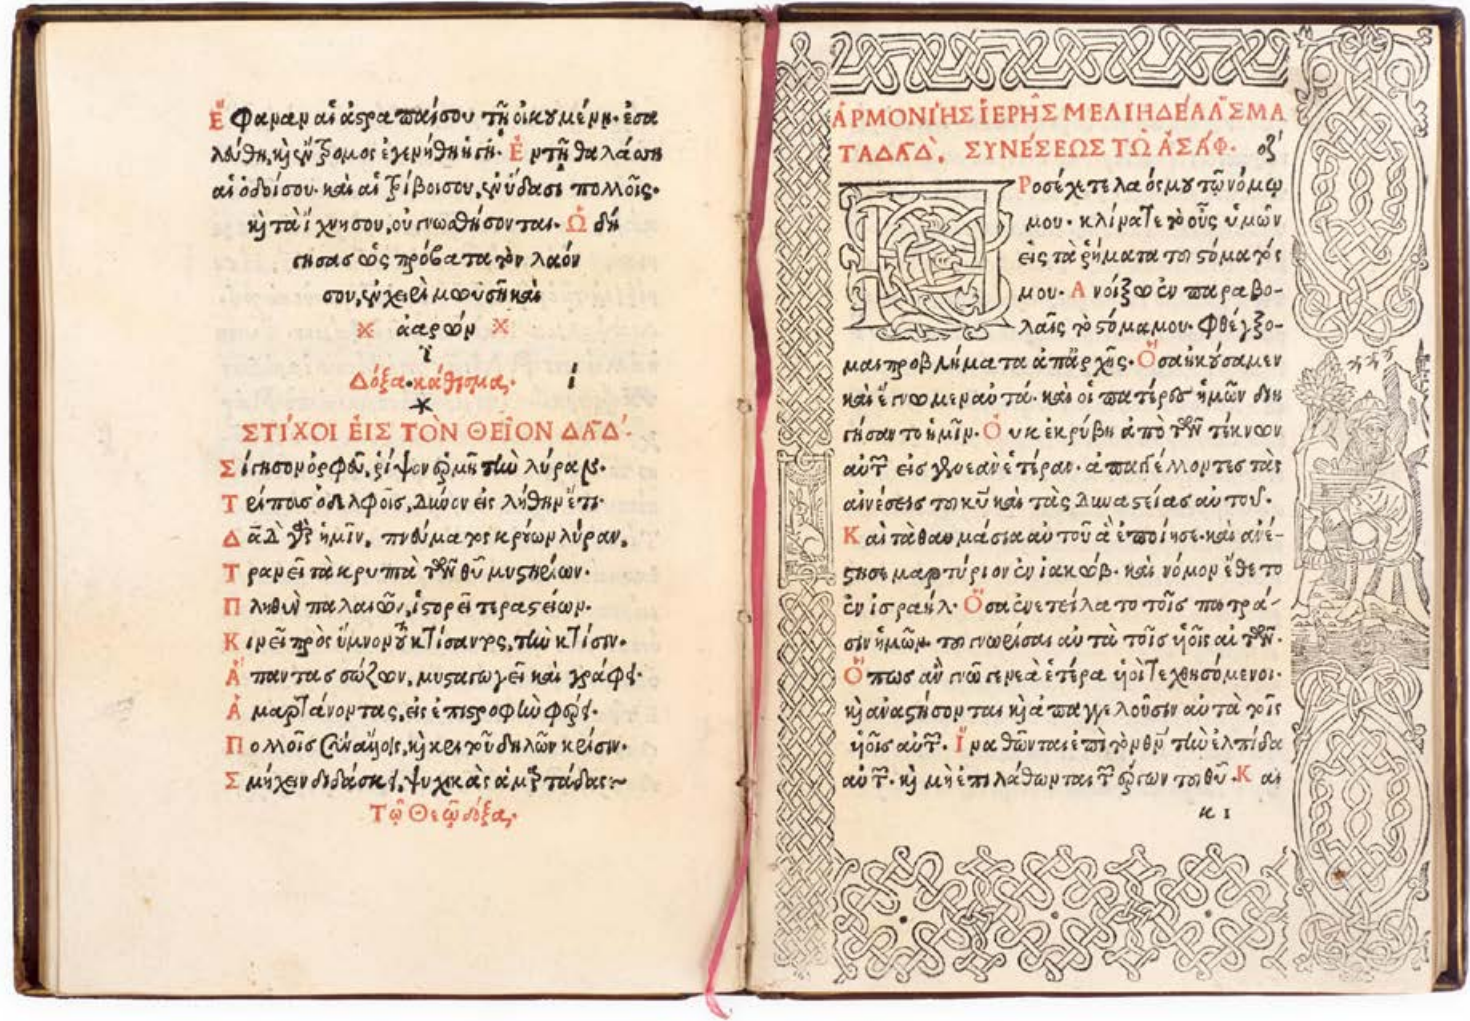 Ἔφαναν αἱ ἀστραπαί σου τῇ οἰκουμένῃ· ἐσα
λεύθη, κὴ ἔντρομος ἐγενήθη ἡ γῆ· Ἐν τῇ θαλάσσῃ
αἱ ὁδοί σου· καὶ αἱ τρίβοι σου, ἐν ὕδασι πολλοῖς·
κὴ τὰ ἴχνη σου, οὐ γνωσθήσονται· Ὡδή
γησας ὡς πρόβατα τὸν λαόν
σου, ἐν χειρὶ μωυσῆ καὶ
ἀαρών
Δόξα· κάθισμα· ι
ΣΤΙ´ΧΟΙ ἘΙΣ ΤῸΝ ΘΕΙ͂ΟΝ ΔᾹΔ´·
Σίγησον ὀρφεῦ, ῥίψον ἑρμῆ τὴν λύραν·
Τρίπους ὁ δελφοῖς, δύνον εἰς λήθην ἔτι·
Δᾱδ γὰρ ἡμῖν, πνεύματος κρούων λύραν,
Τρανεῖ τὰ κρυπτὰ τῶν θῡ μυστηρίων·
Πληθὺν παλαιῶν, ἱστορεῖ τεραστείων·
Κινεῖ πρὸς ὕμνον τοῦ κτίσαντος, τὴν κτίσιν·
Ἅπαντας σώζων, μυσταγωγεῖ καὶ γράφει·
Ἁμαρτάνοντας, εἰς ἐπιστροφὴν φέρει·
Πολλοῖς σὺν ἄλλοις, κὴ κριτοῦ δηλῶν κρίσιν·
Σμήχειν διδάσκει, ψυχικὰς ἁμαρτάδας~
Τῷ Θεῷ δόξα·
ἉΡΜΟΝΙΉΣ ἹΕΡΗ͂Σ ΜΕΛΙΗΔΕΆ ἌΣΜΑ
ΤΑ ΔᾹΔ̀. ΣΥΝΈΣΕΩΣ ΤΩ͂ ἈΣΆΦ· οζ´
Προσέχετε λαός μου τῷ νόμῳ
μου· κλίνατε τὸ οὖς ὑμῶν
εἰς τὰ ῥήματα τοῦ στόματός
μου· Ἀνοίξω ἐν παραβο-
λαῖς τὸ στόμα μου· φθέγξο-
μαι προβλήματα ἀπ᾽ ἀρχῆς· Ὅσα ἠκούσαμεν
καὶ ἔγνωμεν αὐτά· καὶ οἱ πατέρες ἡμῶν διη
γήσαντο ἡμῖν· Οὐκ ἐκρύβη ἀπὸ τῶν τέκνων
αὐτῶν εἰς γενεὰν ἑτέραν· ἀπαγγέλλοντες τὰς
αἰνέσεις τοῦ κῡ καὶ τὰς δυναστείας αὐτοῦ·
Καὶ τὰ θαυμάσια αὐτοῦ ἃ ἐποίησε· καὶ ἀνέ-
στησε μαρτύριον ἐν ἰακώβ· καὶ νόμον ἔθετο
ἐν ἰσραήλ· Ὅσα ἐνετείλατο τοῖς πατρά-
σιν ἡμῶν· τοῦ γνωρίσαι αὐτὰ τοῖς υἱοῖς αὐτῶν·
Ὅπως ἂν γνῶ γενεὰ ἑτέρα υἱοὶ τεχθησόμενοι·
κὴ ἀναστήσονται κὴ ἀπαγγελοῦσιν αὐτὰ τοῖς
υἱοῖς αὐτῶν· Ἵνα θῶνται ἐπὶ τὸν θν̄ τὴν ἐλπίδα
αὐτῶν· κὴ μὴ ἐπιλάθωνται τῶν ἔργων τοῦ θῡ· Και
κ ι